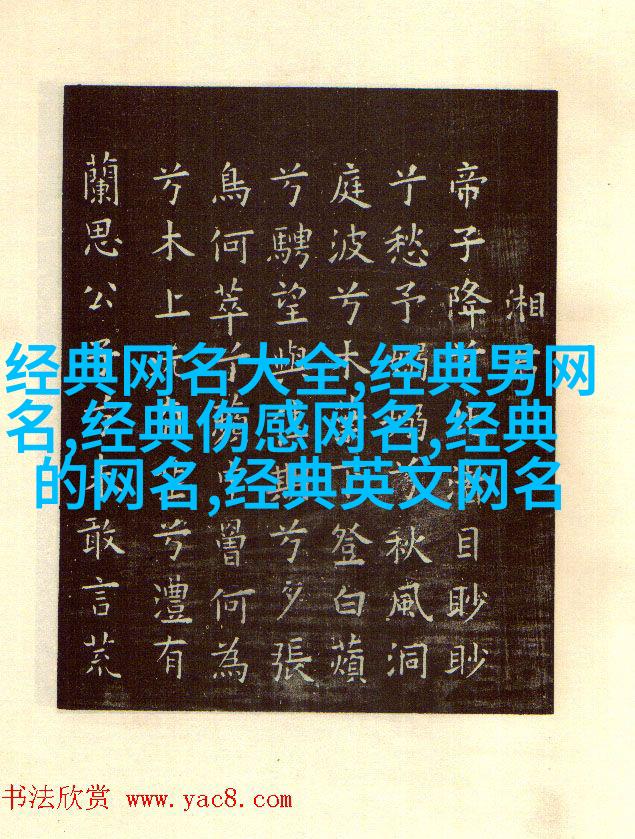 湘
帝子降目眇眇
兮愁予兮秋風洞
庭波兮木登白蘋
兮騁望期兮夕張
鳥何萃罾何為
兮木上兮澧有
蘭思公敢言荒
经典网名大全,经典男网
名,经典伤感网名,经典
的网名,经典英文网名
书法欣赏 www.yac8.com